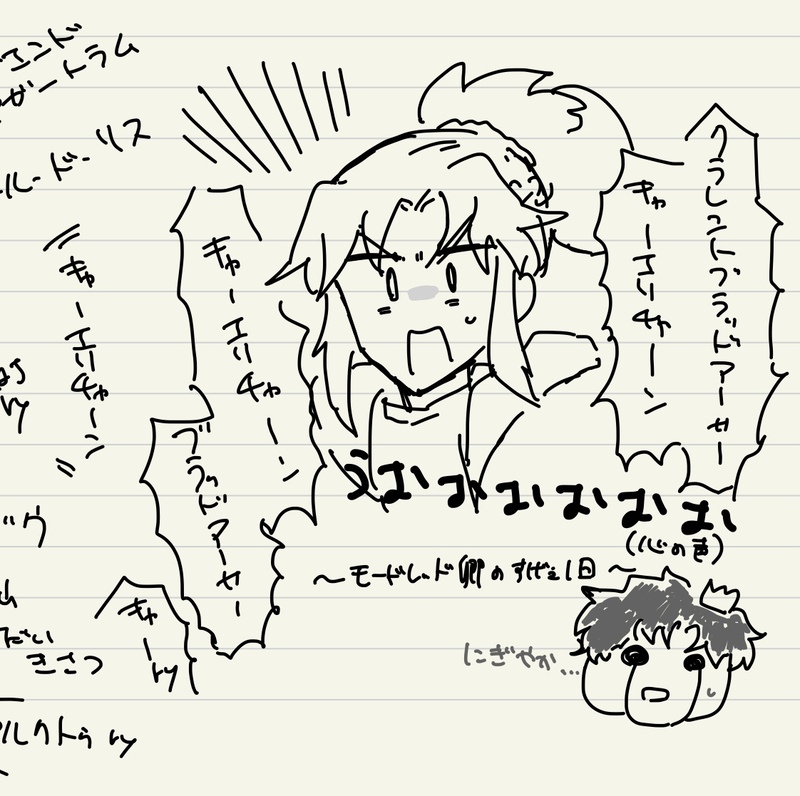 クラレントブラッドアーサー
キャーエリチャーン
キャーエリチャーン
ブラッドアーサー
キャーエリチャーン
キャーry
うおおおおおおお
(心の声)
～モードレッド卿のすげェ1日～
にぎやか…
エンド
ザートラム
ルードーリス
ック
きさつ
ルクトゥ ry